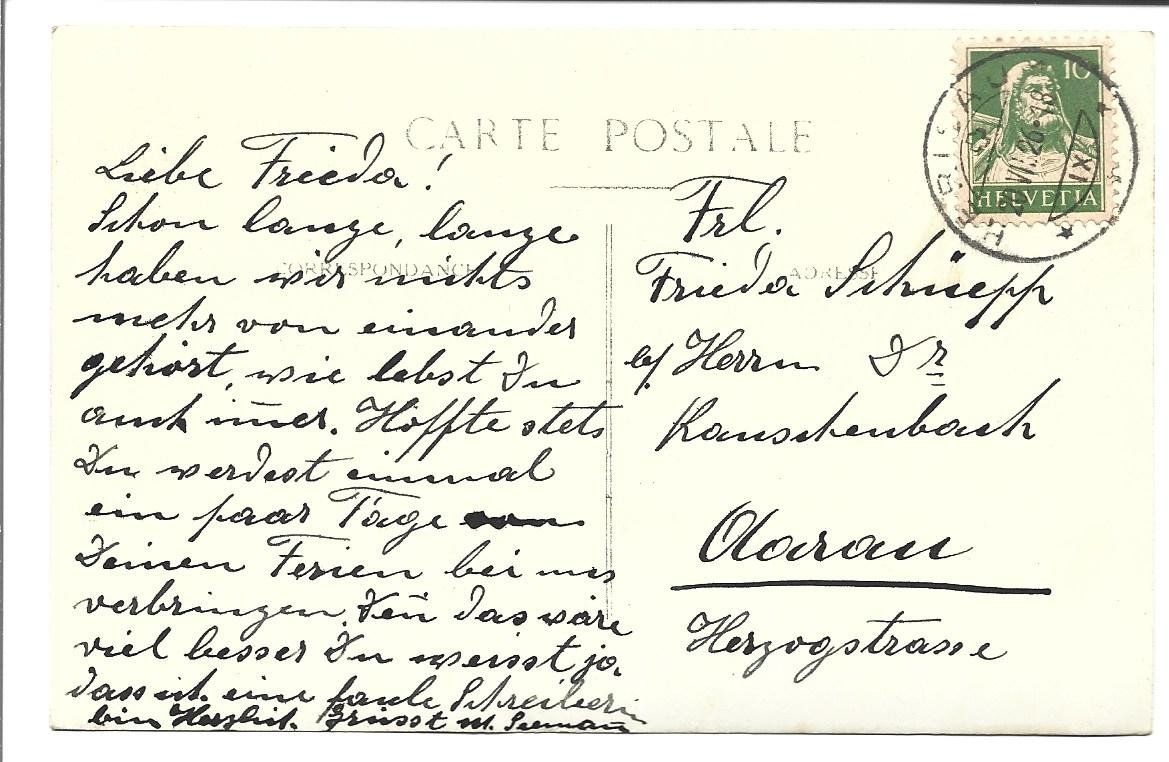 CARTE POSTALE
CORRESPONDANCE
ADRESSE
Liebe Frieda!
Schon lange, lange
haben wir nichts
mehr von einander
gehört, wie lebst Du
auch im̄er. Hoffte stets
Du werdest einmal
ein paar Tage von
Deinen Ferien bei uns
verbringen. Den̄ das wäre
viel besser Du weisst ja,
dass ich eine faule Schreiberin
bin. Herzlich. Grüsst M.
Frl.
Frieda Schüepp
b/ Herrn Dr
Rauschenbach
Aarau
Herzogstrasse
10
HELVETIA
HERISAU
VIII.26-18
IX